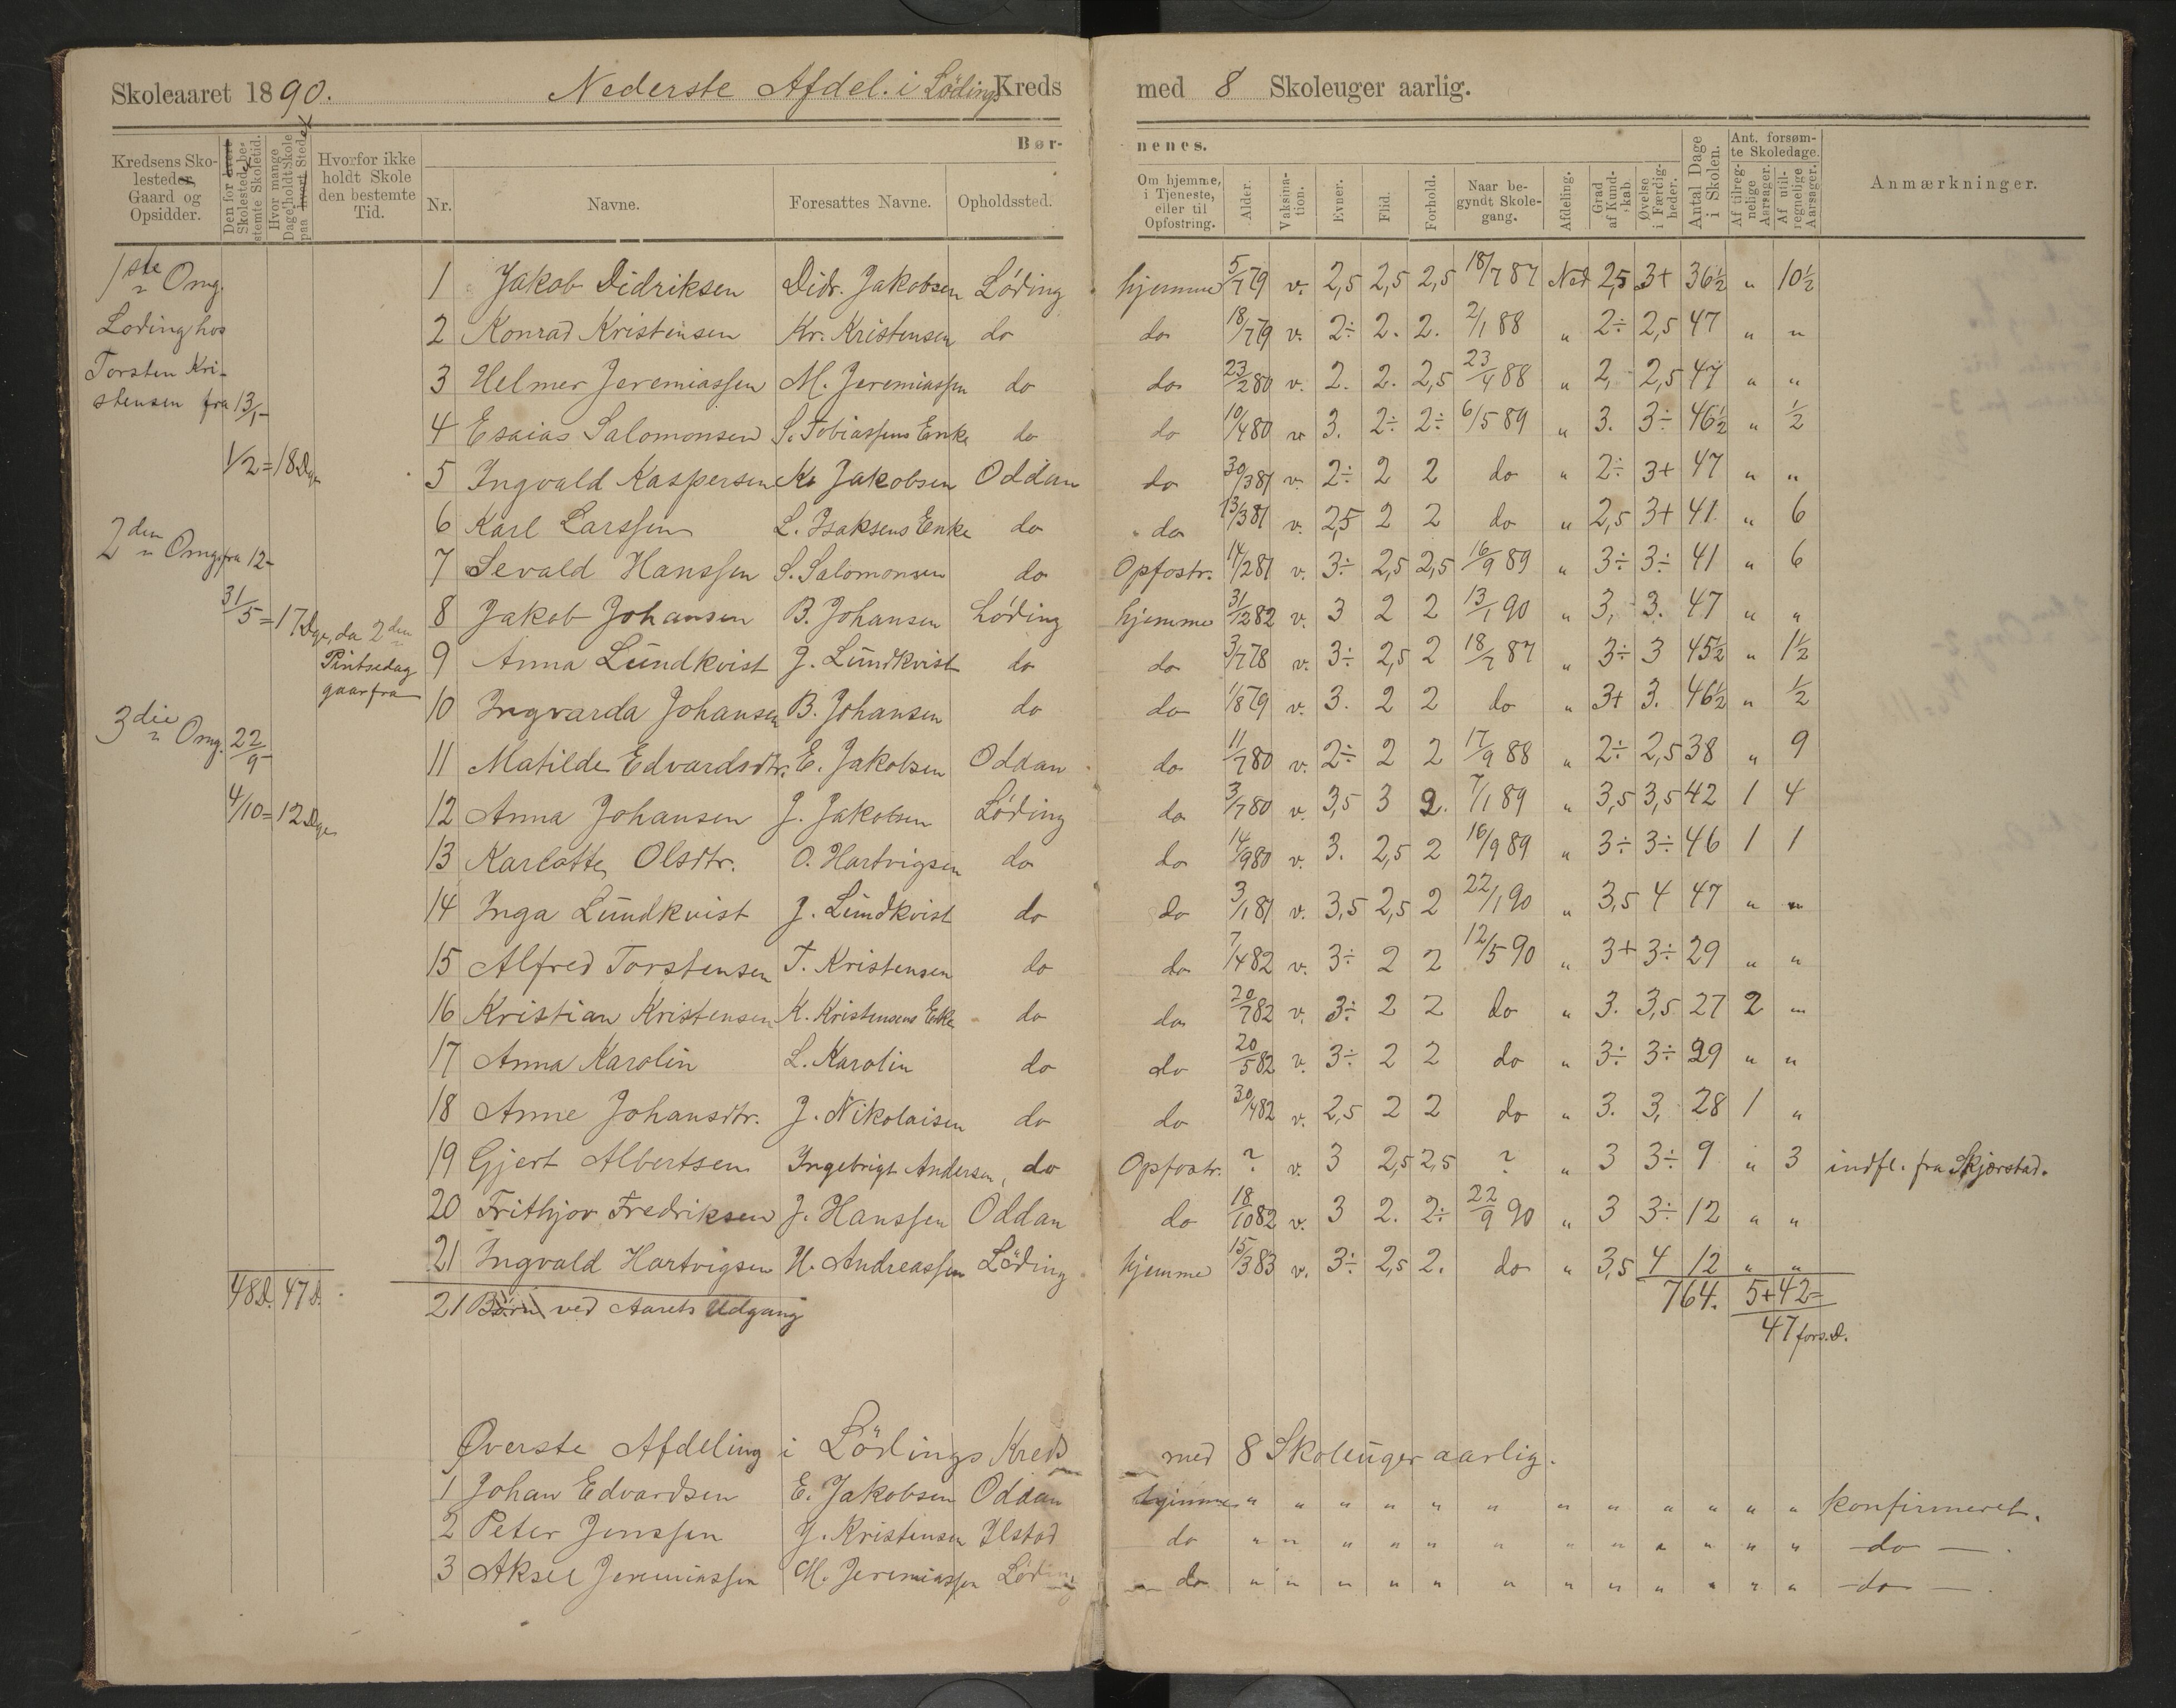 Skoleaaret 1890. Nederste Afdel. i Lödings Kreds med 8 Skoleuger aarlig.
Børnenes.
Kredsens Skolesteder, Gaard og Opsidder.
Den for hvert Skolested bestemte Skoletid.
Hvor mange Dage holdt Skole paa hvert Sted.
Hvorfor ikke holdt Skole den bestemte Tid.
Nr. Navne. Foresattes Navne. Opholdssted.
Om hjemme, i Tjeneste, eller til Opfostring.
Alder. Vaksination. Evner. Flid. Forhold. Naar begyndt Skolegang. Afdeling. Grad af Kundskab. Øvelse i Færdigheder. Antal Dage i Skolen.
Ant. forsømte Skoledage. Af tilregnelige Aarsager. Af utilregnelige Aarsager.
Anmærkninger.
1ste Omg.
Loding hos
Torsten Kri-
stensen fra 13/1-
1/2=18Dge
2den Omg. fra 12-
31/5=17Dge, da 2den
Pintsedag
gaar fra
3die Omg. 22/9-
4/10=12Dge
48D. 47D.
1 Jakob Didriksen Didr. Jakobsen Löding hjemme 5/7 79 v. 2,5 2,5 2,5 18/7 87 Ned 2,5 3+ 36½ " 10½
2 Konrad Kristensen Kr. Kristensen do do 18/7 79 v. 2÷ 2. 2. 2/1 88 " 2÷ 2,5 47 " "
3 Helmer Jeremiassen M. Jeremiassen do do 23/2 80 v. 2. 2. 2,5 23/4 88 " 2, 2,5 47 " "
4 Esaias Salomonsen S. Tobiassens Enke do do 10/4 80 v 3. 2÷ 2÷ 6/5 89 " 3. 3÷ 46½ " ½
5 Ingvald Kaspersen K. Jakobsen Oddan do 30/3 81 v. 2÷ 2 2 do " 2÷ 3+ 47 " "
6 Karl Larssen L. Isaksens Enke do do 13/3 81 v. 2,5 2 2 do " 2,5 3+ 41 " 6
7 Sevald Hanssen S. Salomonsen do Opfostr. 14/2 81 v. 3÷ 2,5 2,5 16/9 89 " 3÷ 3÷ 41 " 6
8 Jakob Johansen B. Johansen Löding hjemme 31/12 82 v. 3 2 2 13/1 90 " 3, 3. 47 " "
9 Anna Lundkvist J. Lundkvist do do 3/7 78 v. 3÷ 2,5 2 18/7 87 " 3÷ 3 45½ " 1½
10 Ingvarda Johansen B. Johansen do do 1/8 79 v. 3. 2 2 do " 3+ 3. 46½ " ½
11 Matilde Edvardsdtr. E. Jakobsen Oddan do 11/7 80 v. 2÷ 2 2 17/9 88 " 2÷ 2,5 38 " 9
12 Anna Johansen J. Jakobsen Löding do 3/7 80 v. 3,5 3 2. 7/1 89 " 3,5 3,5 42 1 4
13 Karlotte Olsdtr. O. Hartvigsen do do 14/9 80 v. 3. 2,5 2 16/9 89 " 3÷ 3÷ 46 1 1
14 Inga Lundkvist J. Lundkvist do do 3/1 81 v. 3,5 2,5 2 22/1 90 " 3,5 4 47 " "
15 Alfred Torstensen T. Kristensen do do 7/4 82 v. 3÷ 2 2 12/5 90 " 3+ 3÷ 29 " "
16 Kristian Kristensen K. Kristensens Enke do do 20/7 82 v. 3÷ 2 2 do " 3. 3,5 27 2 "
17 Anna Karolin L. Karolin do do 20/5 82 v. 3÷ 2 2 do " 3÷ 3÷ 29 " "
18 Anne Johansdtr. J. Nikolaisen do do 30/4 82 v. 2,5 2 2 do " 3. 3, 28 1 "
19 Gjert Albertsen Ingebrigt Andersen, do Opfostr. ? v. 3 2,5 2,5 ? " 3 3÷ 9 " 3 indfl. fra Skjerstad.
20 Frithjov Fredriksen J. Hanssen Oddan do 18/10 82 v. 3 2. 2÷ 22/9 90 " 3 3÷ 12 " "
21 Ingvald Hartvigsen H. Andreassen Löding hjemme 15/3 83 v. 3÷ 2,5 2. do " 3,5 4 12 " "
21 Börn ved Aarets Udgang 764. 5+42=
47 fors.D.
Øverste Afdeling i Lödings Kreds med 8 Skoleuger aarlig.
1 Johan Edvardsen E. Jakobsen Oddan hjemme " " " " " " " " " " " " konfirmeret.
2 Peter Jenssen J. Kristensen Ilstad do " " " " " " " " " " " " do
3 Aksel Jeremiassen M. Jeremiassen Löding do " " " " " " " " " " " " do